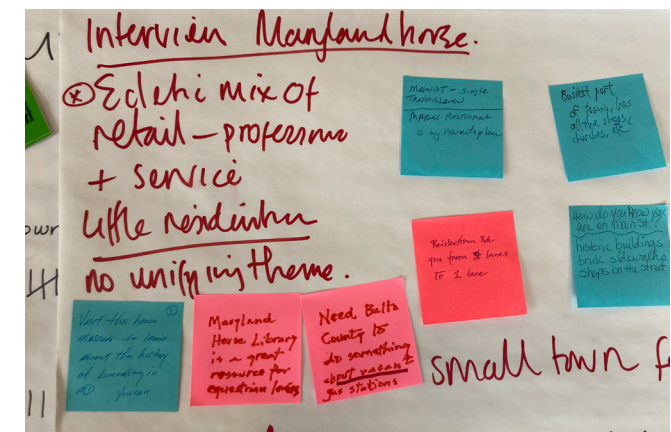 Interview Maryland horse.
Eclehi mix of
retail – professions
+ service
little residential
no unifying theme.
Main St – single
Traffic
is my favorite place
Busiest part
of town, has
all the shops,
churches, etc
How do you know you
are on Main St?
historic buildings
brick sidewalks
shops on the street
Reisterstown Rd
goes from lanes
to 1 lane
Visit the horse
to learn
about the history
of in
MD.
Maryland
Horse Library
is a great
resource for
equestrian lovers
Need Balto
County to
do something
about vacant
gas stations
small town f